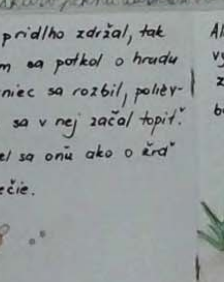 pridlho zdržal, tak
m sa potkol o hrudu
niec sa rozbil, poliev-
sa v nej začal topiť.
el sa onú ako o žrď
ečie.
Al
vy
z
b